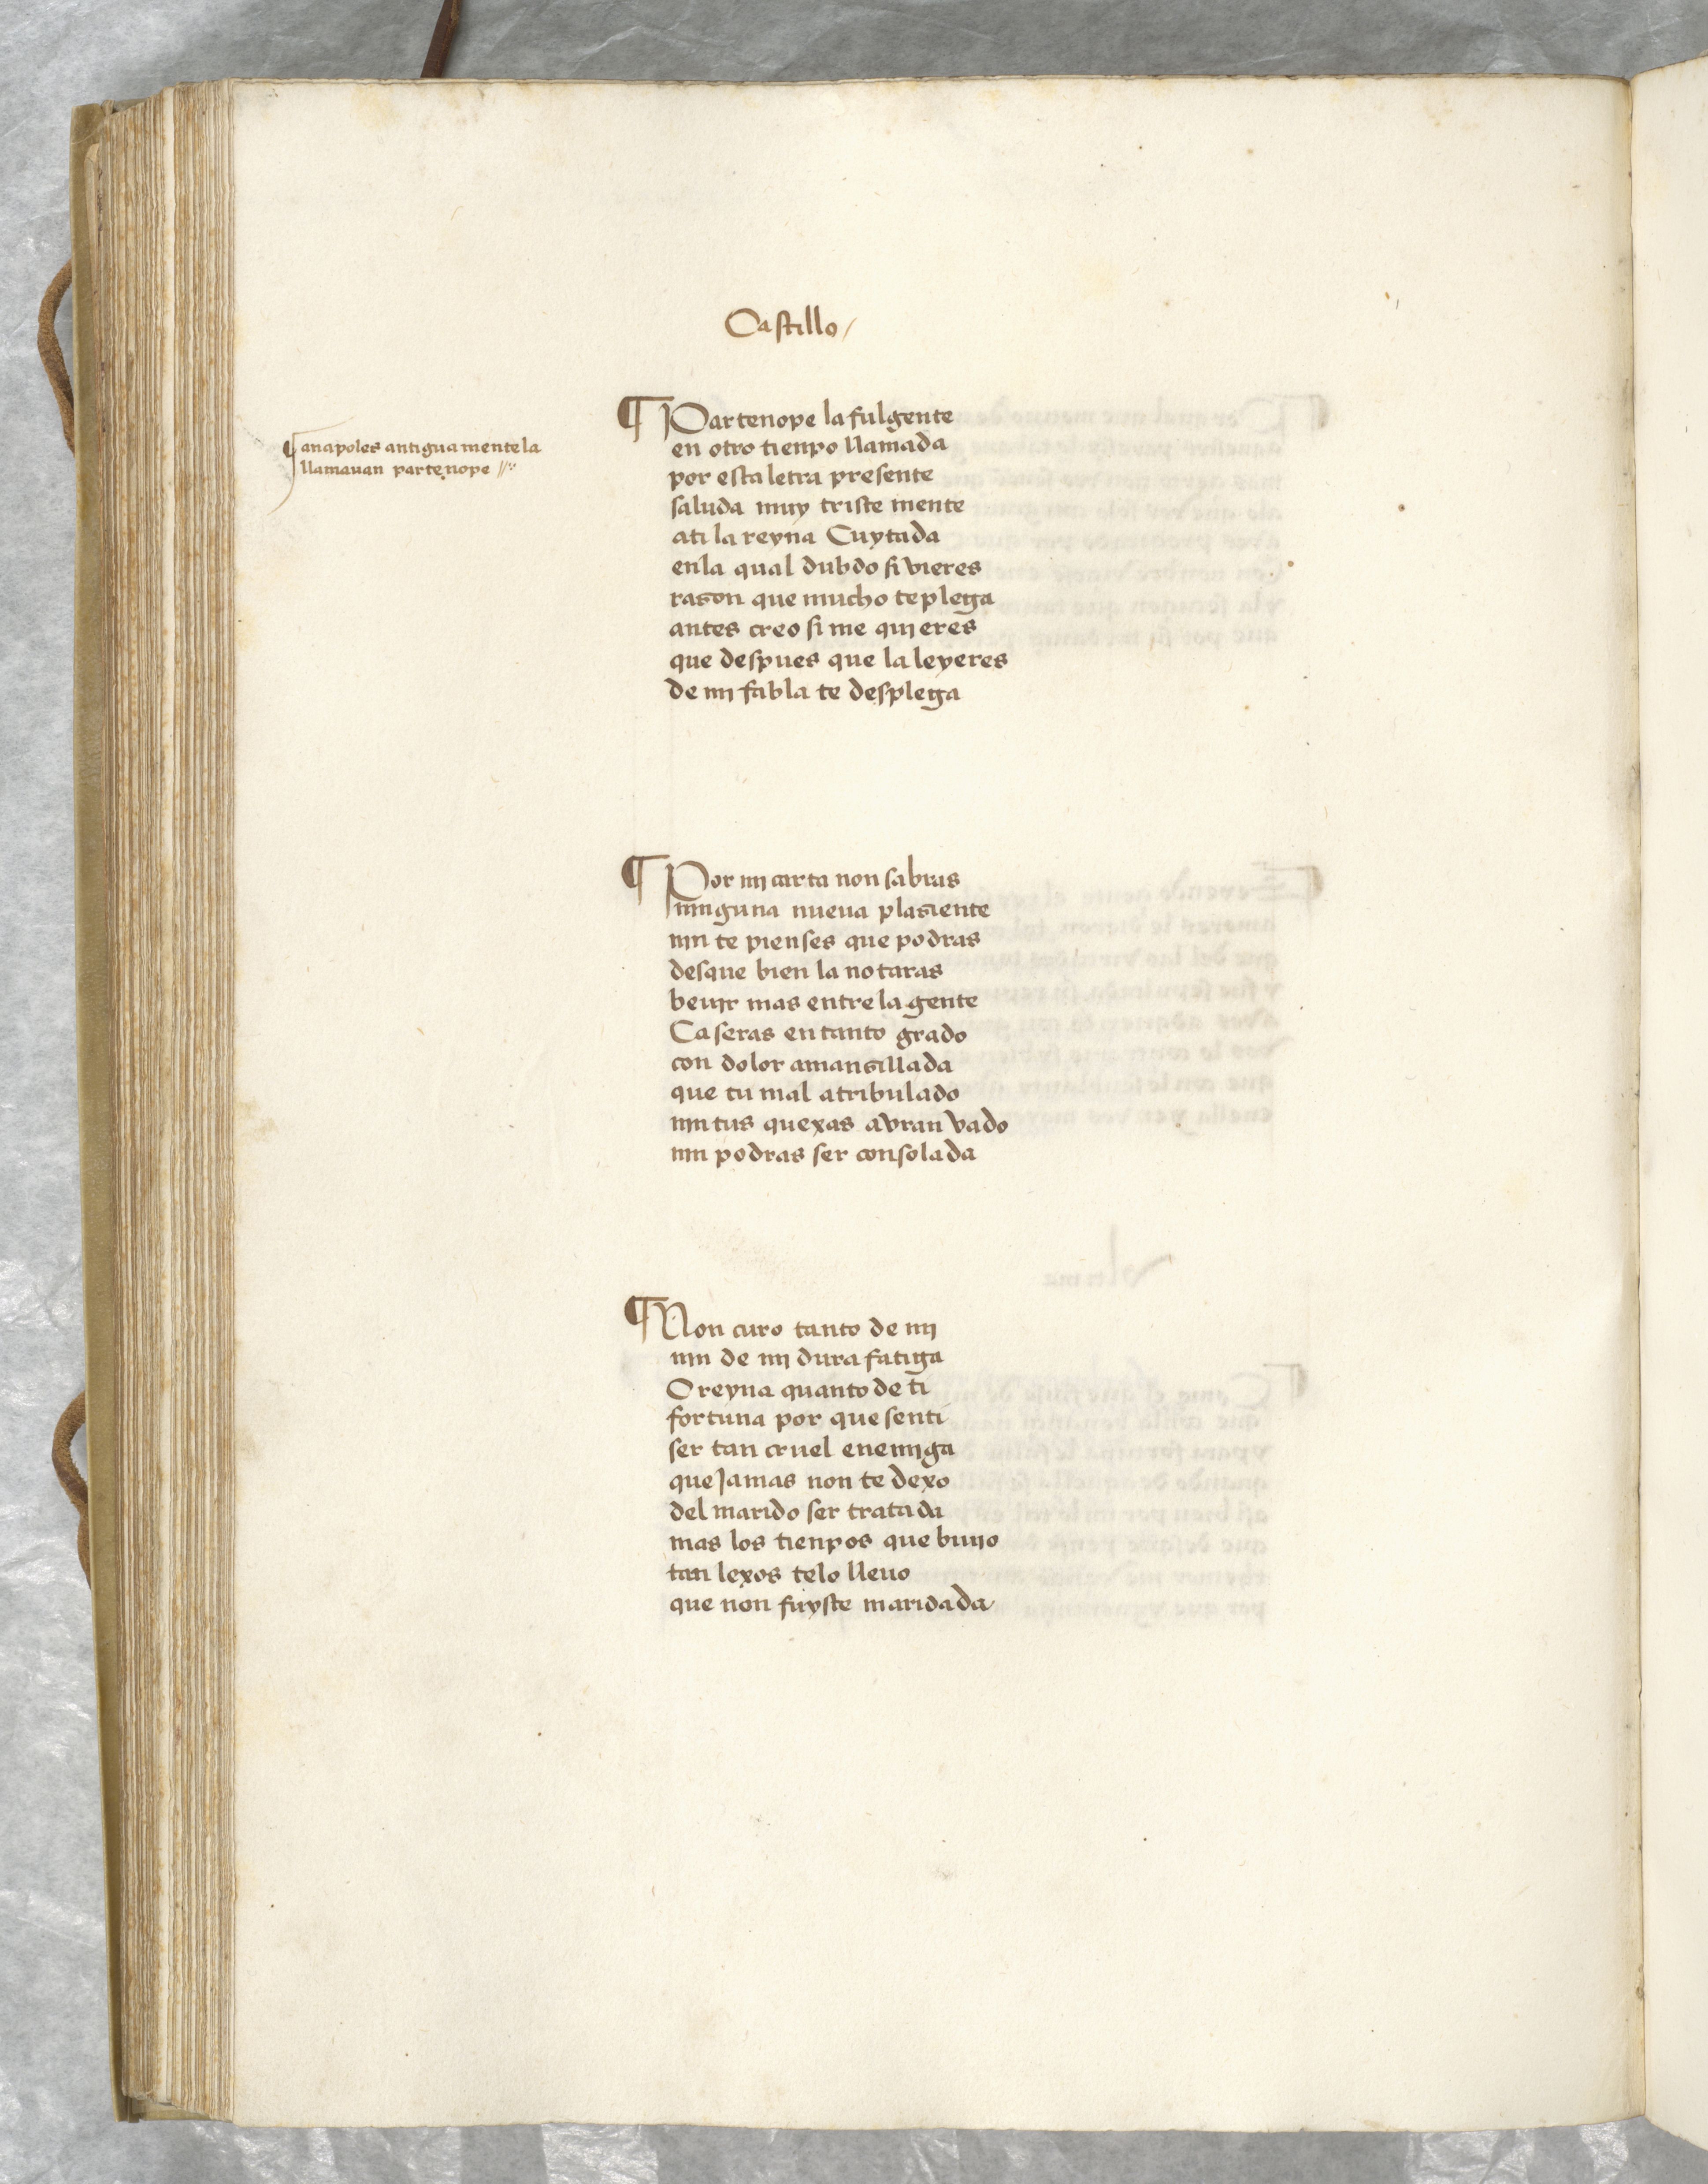 Castillo /
¶ anapoles antigua mente la
llamauan partenope //
¶ Partenope la fulgente
en otro tienpo llamada
por esta letra presente
saluda muy triste mente
ati la reyna Cuytada
enla qual dubdo si vieres
razon que mucho te plega
antes creo si me quieres
que despues que la leyeres
de mi fabla te desplega
¶ Por mi carta non sabras
ninguna nueua plaziente
nin te pienses que podras
desque bien la notaras
beuir mas entre la gente
Ca seras en tanto grado
con dolor amanzillada
que tu mal atribulado
nin tus quexas avran vado
nin podras ser consolada
¶ Non curo tanto de mi
nin de mi dura fatiga
O reyna quanto de ti
fortuna por que senti
ser tan cruel enemiga
que Jamas non te dexo
del marido ser tratada
mas los tienpos que biuio
tan lexos telo lleuo
que non fuyste maridada